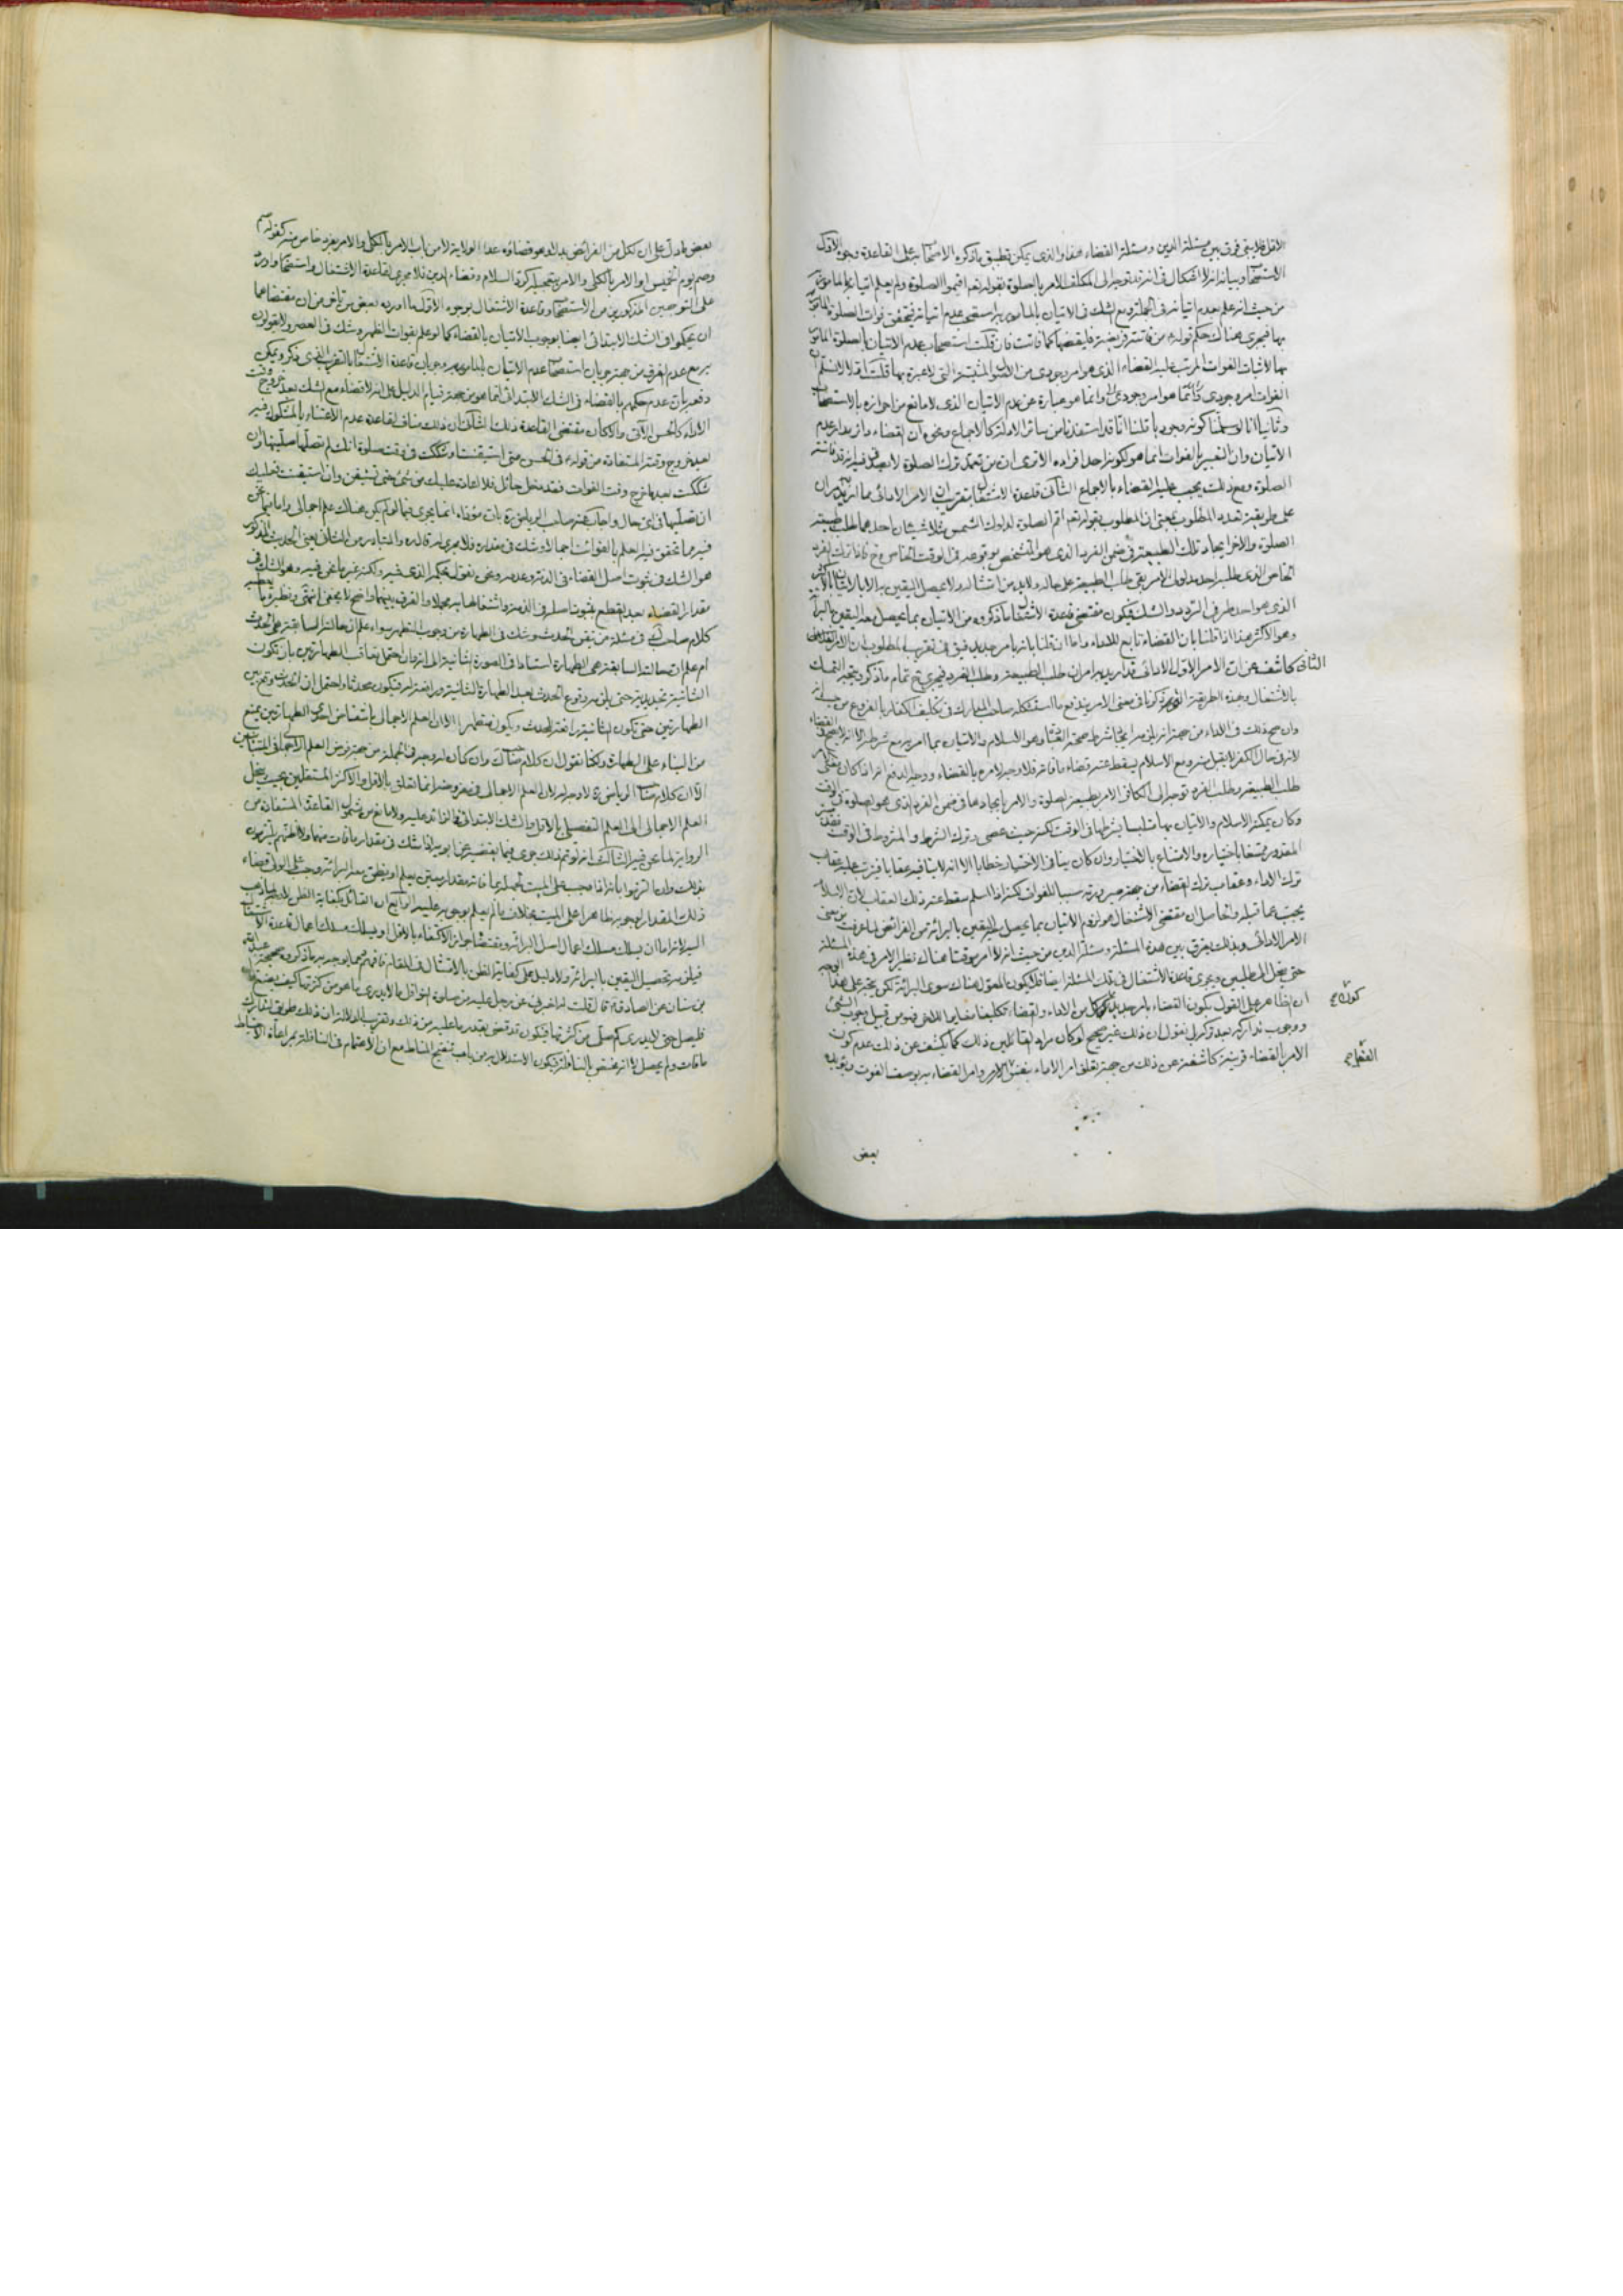 الاقل فلا يبقى فرق بين مسئلة الدين ومسئلة القضاء هذا والذى يمكن تطبيق ماذكره الاصحاب على القاعدة وجوه الاول
الاستصحاب وبيانه انه لا اشكال فى انه قد توجه الى المكلف الامر بالصلوة بقوله تعم اقيموا الصلوة ولم يعلم اتيانه بالمامور به
من حيث انه علم بعدم اتيانه فى الجملة ومع الشك فى الاتيان بالمامور به يستصحب عدم اتيانه فيتحقق فوات الصلوة المامور
بها فيجرى هناك حكم قوله من فاتته فريضة فليقضها كما فاتت فان قلت استصحاب عدم الاتيان بالصلوة المامور
بها لاثبات الفوات المرتب عليه القضاء الذى هو امر وجودى من الاصول المثبتة التى لا عبرة بها قلت اولا لا نسلم ان
الفوات امر وجودى وانما هو عبارة عن عدم الاتيان الذى لا مانع من احرازه بالاستصحاب
وثانيا انا لو سلمنا كونه وجوديا قلنا انا قد استفدنا من سائر الادلة كالاجماع ونحوه ان القضاء دائر مدار عدم
الاتيان وان التعبير بالفوات انما هو لكونه احد افراده الا ترى ان من تعمد ترك الصلوة لا يصدق فيه انه قد فاتته
الصلوة ومع ذلك يجب عليه القضاء بالاجماع الثانى قاعدة الاشتغال بتقريب ان الامر الادائى مما اريد به
على طريقة تعدد المطلوب بمعنى ان المطلوب بقوله تعم اقم الصلوة لدلوك الشمس مثلا شيئان احدهما طلب طبيعة
الصلوة والاخر ايجاد تلك الطبيعة فى ضمن الفرد الذى هو المتشخص بوقوعه فى الوقت الخاص وح فاذا ترك الفرد
الخاص الذى طلبه احد مدلولى الامر بقى طلب الطبيعة على حاله ولا بد من امتثاله ولا يحصل اليقين به الا بالاتيان بالاكثر
الذى هو احد طرفى التردد والشك فيكون مقتضى قاعدة الاشتغال ماذكروه من الاتيان بما يحصل معه اليقين بالبرائة
وهو الاكثر هذا اذا قلنا بان القضاء تابع للاداء واما ان قلنا بانه بامر جديد فيق فى تقريب المطلوب ان الامر القضائى
الثانى كاشف عن ان الامر الاول الادائى قد اريد به امران طلب الطبيعة وطلب الفرد فيجرى ح تمام ماذكر ويتجه التمسك
بالاشتغال وبهذه الطريقة التى ذكرنا فى معنى الامر يندفع ما استشكله صاحب المدارك فى تكليف الكفار بالفروع من حيث انه
وان صح ذلك فى الاداء من جهة انه يلزمه ايجاد شرط صحة العبادة وهو الاسلام والاتيان بما امر به مع شرطه الا انه لا يصح فى القضاء
لانه فى حال الكفر لا يقبل منه ومع الاسلام يسقط عنه قضاء ما فاته فلا وجه لامره بالقضاء ووجه الدفع انه اذا كان مقتضى الامر
طلب الطبيعة وطلب الفرد توجه الى الكافر الامر بطبيعة الصلوة والامر بايجادها فى ضمن الفرد الذى هو الصلوة فى الوقت
وكان يمكنه الاسلام والاتيان بها متلبسا بشرطها فى الوقت لكنه حيث عصى وترك الشرط والمشروط فى الوقت
المقدور ممتنعا باختياره والامتناع بالاختيار وان كان ينافى الاختيار خطابا الا انه لا ينافيه عقابا فيترتب عليه عقاب
ترك الاداء وعقاب ترك القضاء من جهة صيرورته سببا للفوات لكنه اذا اسلم سقط عنه ذلك العقاب لان الاسلام
يجب عما قبله والحاصل ان مقتضى الاشتغال هو لزوم الاتيان بما يحصل اليقين بالبرائة من الفرائض لما عرفت من معنى
الامر الادائى وبذلك يفرق بين هذه المسئلة ومسئلة الدين من حيث انه لا امر موقتا هناك نظير الامر فى هذه المسئلة
حتى ينحل الى مطلبين ويجرى قاعدة الاشتغال فى تلك المسئلة ايضا فلا يكون المعول هناك سوى البرائة لكن يتجه على هذا الوجه
ان الظاهر على القول بكون القضاء بامر جديد كون كل من الاداء والقضاء تكليفا مغايرا للاخر فهو من قبيل وجوب الشئ
ووجوب تداركه بعد تركه لا يقول ان ذلك غير صحيح لو كان مراد القائلين ذلك كما يكشف عن ذلك عدم كون
الامر بالقضاء قرينة كاشفة عن ذلك من جهة تعلق امر الاداء بنفس الامر وامر القضاء به بوصف الفوت ويؤيده
بعض
بعض مادل على ان لكل من الفرائض بدلا وهو قضاؤه عدا الولاية لا من باب الامر بالكلى والامر بفرد خاص منه كقوله صم
وصم يوم الخميس او الامر بالكلى والامر بتعجيله كرد السلام وقضاء الدين فلا مجرى لقاعدة الاشتغال واستصحاب واورد
على التوجيهين المذكورين من الاستصحاب وقاعدة الاشتغال بوجوه الاول ما اورده بعض من تاخر من ان مقتضاهما
ان يحكموا فى الشك الابتدائى ايضا بوجوب الاتيان بالقضاء كما لو علم بفوات الظهر وشك فى العصر ولا يقولون
به مع عدم الفرق من جهة جريان استصحاب عدم الاتيان بالمامور به وجريان قاعدة الاشتغال بالتقريب الذى ذكر ويمكن
دفعه بان عدم حكمهم بالقضاء فى الشك الابتدائى انما هو من جهة قيام الدليل على انه لا قضاء مع الشك بعد خروج وقت
الاداء كالحسن الآتى والا كان مقتضى القاعدة ذلك الثانى ان ذلك مناف لقاعدة عدم الاعتناء بالمشكوك فيه
بعد خروج وقته المستفادة من قوله فى الحسن متى استيقنت او شككت فى وقت صلوة انك لم تصلها صليتها وان
شككت بعد ما خرج وقت الفوات فقد دخل حائل فلا اعادة عليك من شك حتى تستيقن وان استيقنت فعليك
ان تصليها فى اى حال واجاب عنه صاحب الرياض ره بان موفاده انما يجرى فيما لو لم يكن هناك علم اجمالى واما ما نحن
فيه مما تحقق فيه العلم بالفوائت اجمالا وشك فى مقداره فلا مجرى له قال ره والمتبادر من الثانى يعنى الحديث المذكور
هو الشك فى ثبوت اصل القضاء فى الذمة وعدمه ونحن نقول بحكمه الذى فيه ولكنه غير ما نحن فيه وهو الشك فى
مقدار القضاء بعد القطع بثبوت اصله فى الذمة واشتغالها به مجملا والفرق بينهما واضح لا يخفى انتهى ونظيره ما يعطيه
كلام صاحب فى مسئلة من تيقن الحدث وشك فى الطهارة من وجوب التطهر سواء علم ان حالته السابقة هى الحدث
ام علم ان حالته السابقة هى الطهارة استنادا فى الصورة الثانية الى انه وان احتمل تعاقب الطهارتين بان تكون
الثانية تجديدية حتى يلزمه وقوع الحدث بعد الطهارة الثانية ورافعتها له فيكون محدثا واحتمل ان الحدث وقع بين
الطهارتين حتى تكون الثانية رافعة للحدث ويكون متطهرا الا ان العلم الاجمالى بانتقاض احدى الطهارتين يمنع
من البناء على الطهارة ولكنا نقول ان كلام صاحب وان كان له وجه فى الجملة من جهة فرض العلم الاجمالى فى المتباينين
الا ان كلام صاحب الرياض ره لا وجه له لان العلم الاجمالى فى مفروضه انما تعلق بالاقل والاكثر المستقلين بحيث ينحل
العلم الاجمالى الى العلم التفصيلى بالاقل والشك الابتدائى فى الزائد عليه ولا مانع من شمول القاعدة المستفادة من
الرواية لما نحن فيه الثالث انه لو تم ذلك جرى فيما يقضيه عن ابويه اذا شك فى مقدار ما فات منهما ولا اظنهم يلتزمون
بذلك وان التزموا بانه اذا وجب على الميت لجهله بما فاته مقدار معين يعلم او يظن معه البرائة وجب على الولى قضاء
ذلك المقدار لوجوبه ظاهرا على الميت بخلاف ما لم يعلم بوجوبه عليه الرابع ان القائل بكفاية الظن لا وجه لما ذهب
اليه لانه اما ان يسلك مسلك اعمال اصل البرائة ومقتضاه جواز الاكتفاء بالاقل او يسلك مسلك اعمال قاعدة الاشتغال
فيلزمه تحصيل اليقين بالبرائة ولا دليل على كفاية الظن بالامتثال فى المقام فافهم مما يوجه به ماذكروه صحيحة عبد الله
بن سنان عن الصادق ع قال قلت له اخبرنى عن رجل عليه من صلوة النوافل ما لا يدرى ما هو من كثرتها كيف يصنع قال
فليصل حتى لا يدرى كم صلى من كثرتها فيكون قد قضى بقدر ما عليه من ذلك وتقريب الدلالة ان ذلك طريق لتدارك
ما فات ولم يحصل لا انه مختص بالنافلة فيكون الاستدلال به من باب تنقيح المناط مع ان الاهتمام فى النافلة بمراعاة الاحتياط